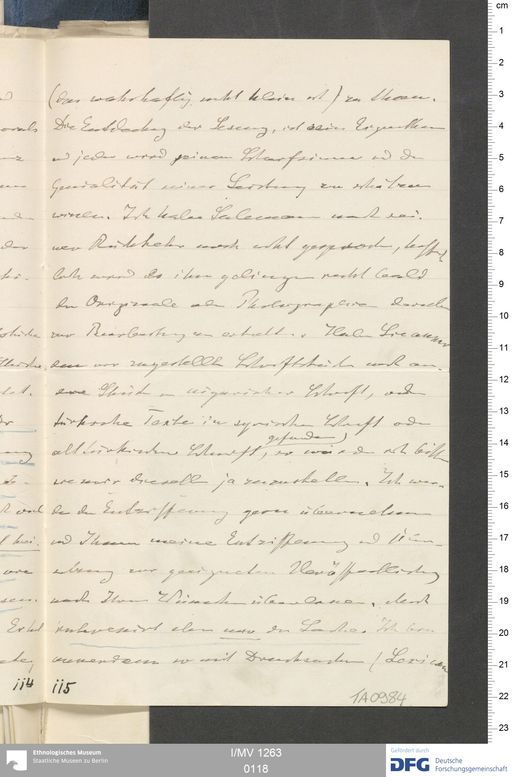 (das wahrhaftig nicht klein ist) zu thun.
Die Entdeckung der Lesung, ist sein Eigenthum
und jeder wird seinen Scharfsinn und die
Genialität seiner Leistung zu schätzen
wissen. Ich habe Salemann nach sei-
ner Rückkehr noch nicht gesprochen, hoffent-
lich wird es ihm gelingen recht bald
die Originale oder Photographien derselben
zur Bearbeitung zu erhalten. Haben Sie ausser
den mir zugestellten Schriftstücken noch an-
dere Stücke in uigurischer Schrift, oder
türkische Texte in syrischer Schrift oder
alttürkischer Schrift, gefunden)
so würde ich bitten
sie mir dieselben ja zuzustellen. Ich wer-
de die Entzifferung gern übernehmen
und Ihnen meine Entzifferung und Über-
setzung zur geeigneten Veröffentlichung
nach Ihrem Wunsche überlassen.
interessirt aber nur die Sache. Ich bin
ausserdem so mit Drucksachen (Lexicon
114 115
IA0984
cm
1
2
3
4
5
6
7
8
9
10
11
12
13
14
15
16
17
18
19
20
21
22
23
Ethnologisches Museum
Staatliche Museen zu Berlin
I/MV 1263
0118
Gefördert durch
DFG Deutsche
Forschungsgemeinschaft